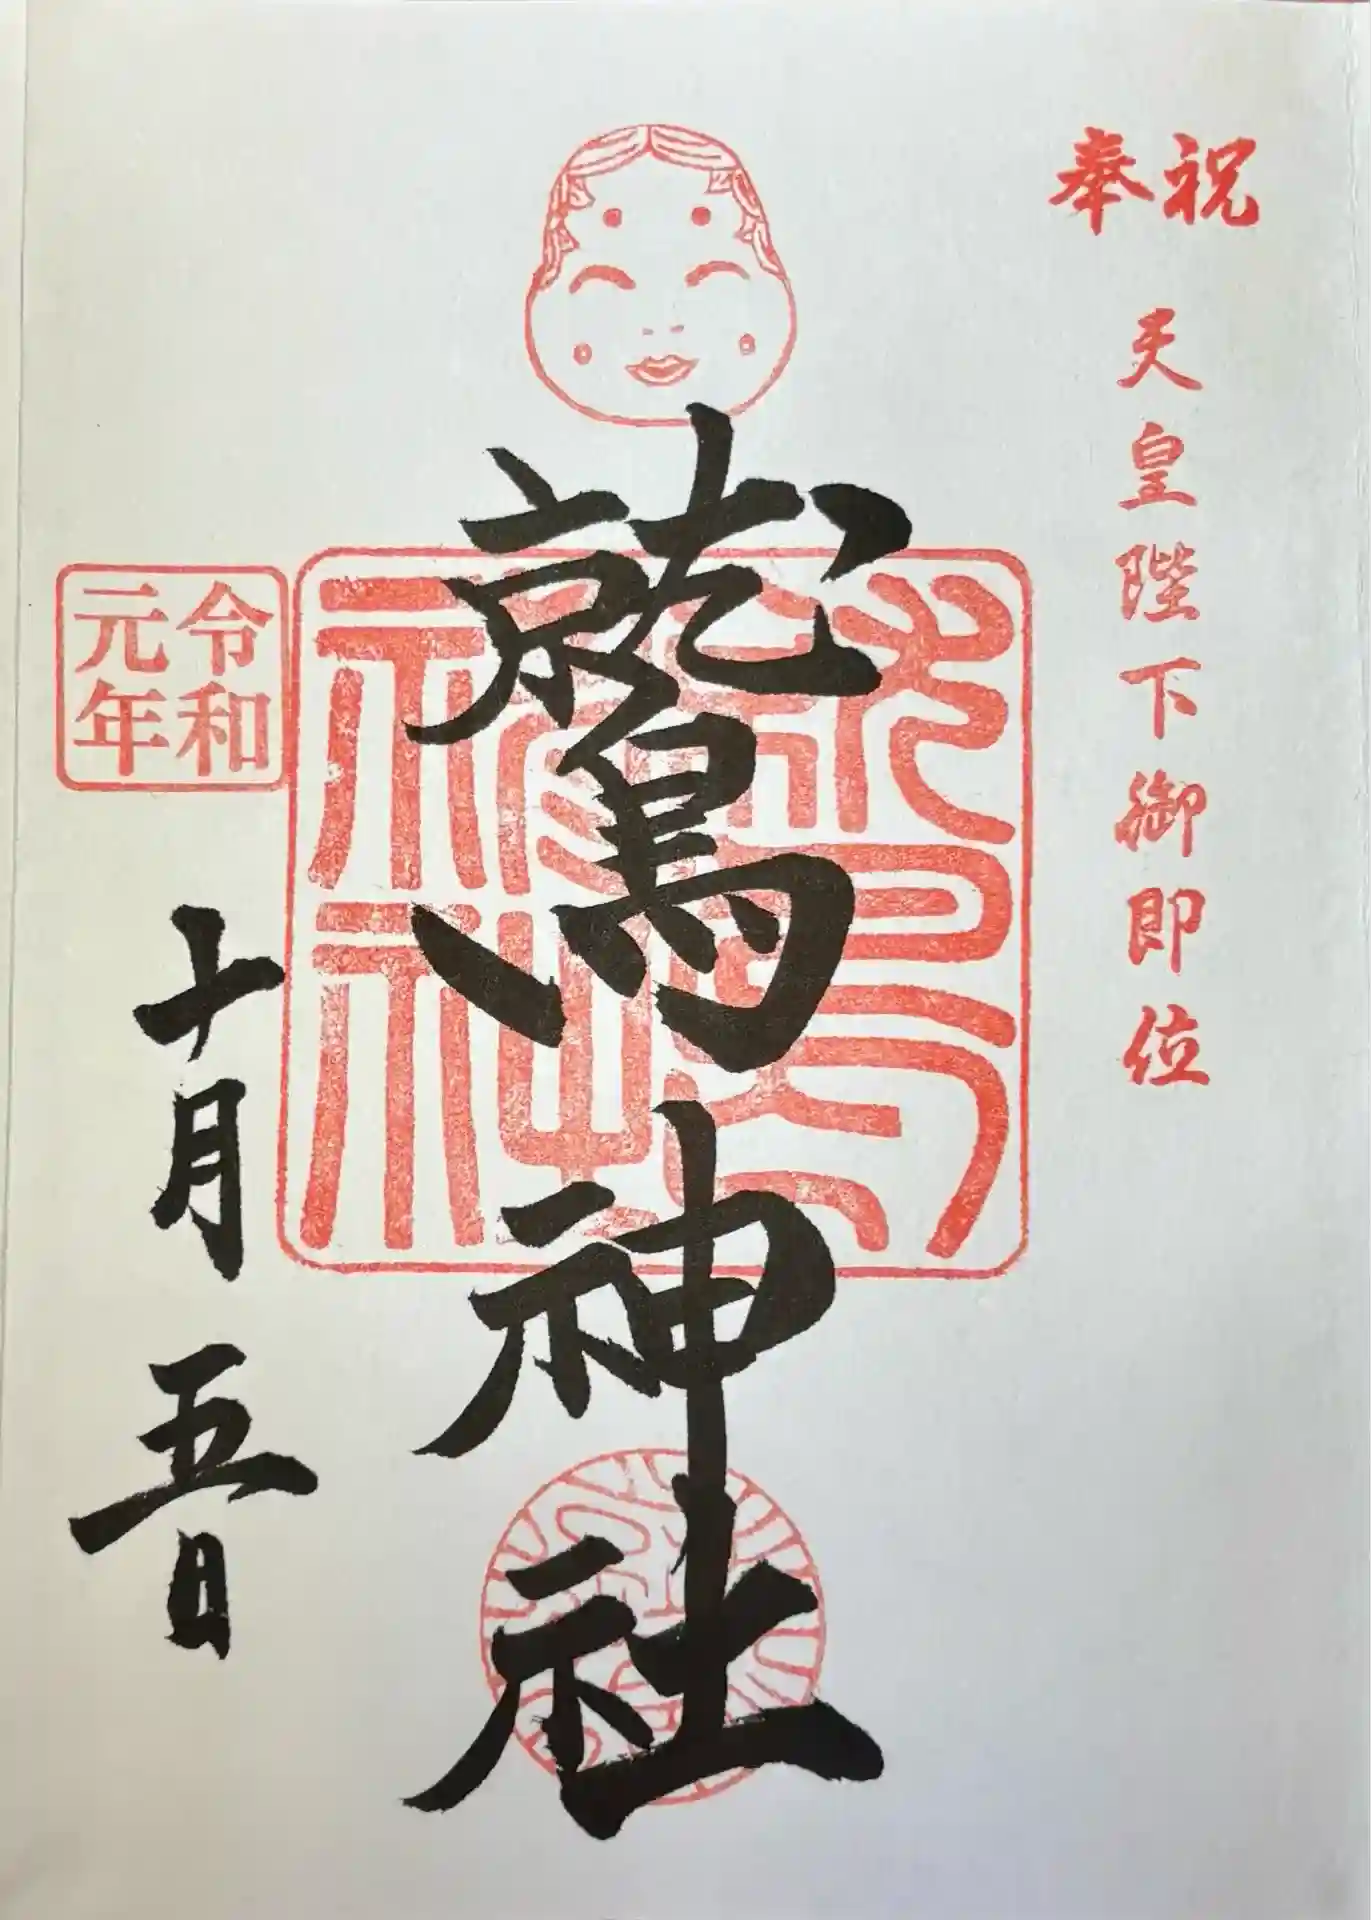 奉祝
天皇陛下御即位
鷲神社
令和
元年
十月五日